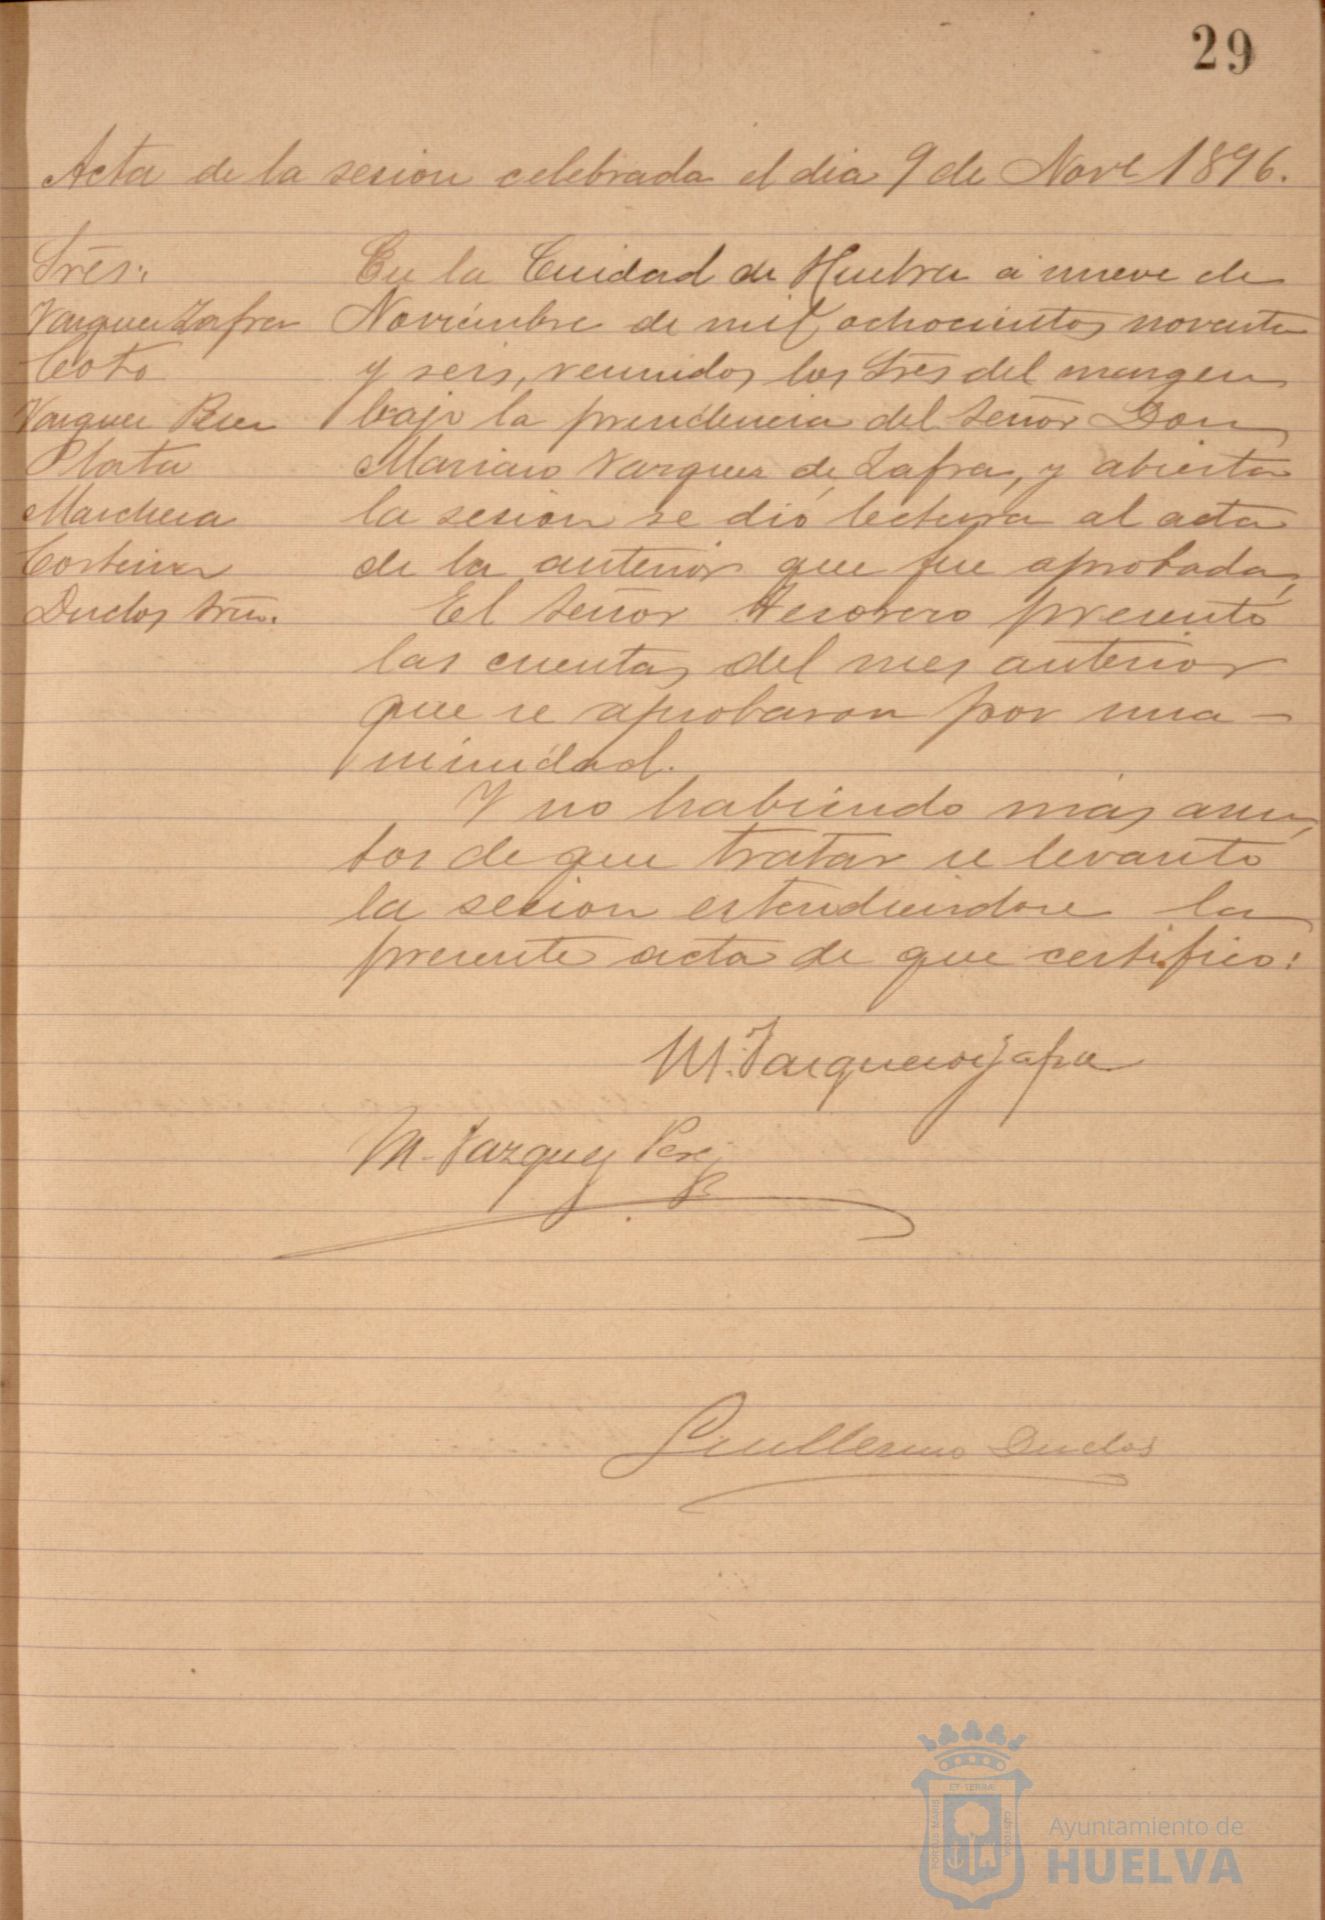 29
Acta de la sesion celebrada el dia 9 de Nove 1896.
Sres:
Vazquez Zafra
Coto
Vazquez Perez
Plata
Marchena
Cortina
Duclos Srio.
En la Ciudad de Huelva a nueve de
Noviembre de mil ochocientos noventa
y seis, reunidos los Sres del margen
bajo la presidencia del señor Don
Mariano Vazquez de Zafra, y abierta
la sesion se dió lectura al acta
de la anterior que fue aprobada,
El señor Tesorero presentó
las cuentas del mes anterior
que se aprobaron por una-
nimidad.
Y no habiendo más asun,
tos de que tratar se levantó
la sesion estendiendose la
presente acta de que certifico:
M. Vazquez de Zafra
M. Vazquez Perez
Guillermo Duclos
PORTUS MARIS ET TERRÆ CUSTODIA
Ayuntamiento de
HUELVA